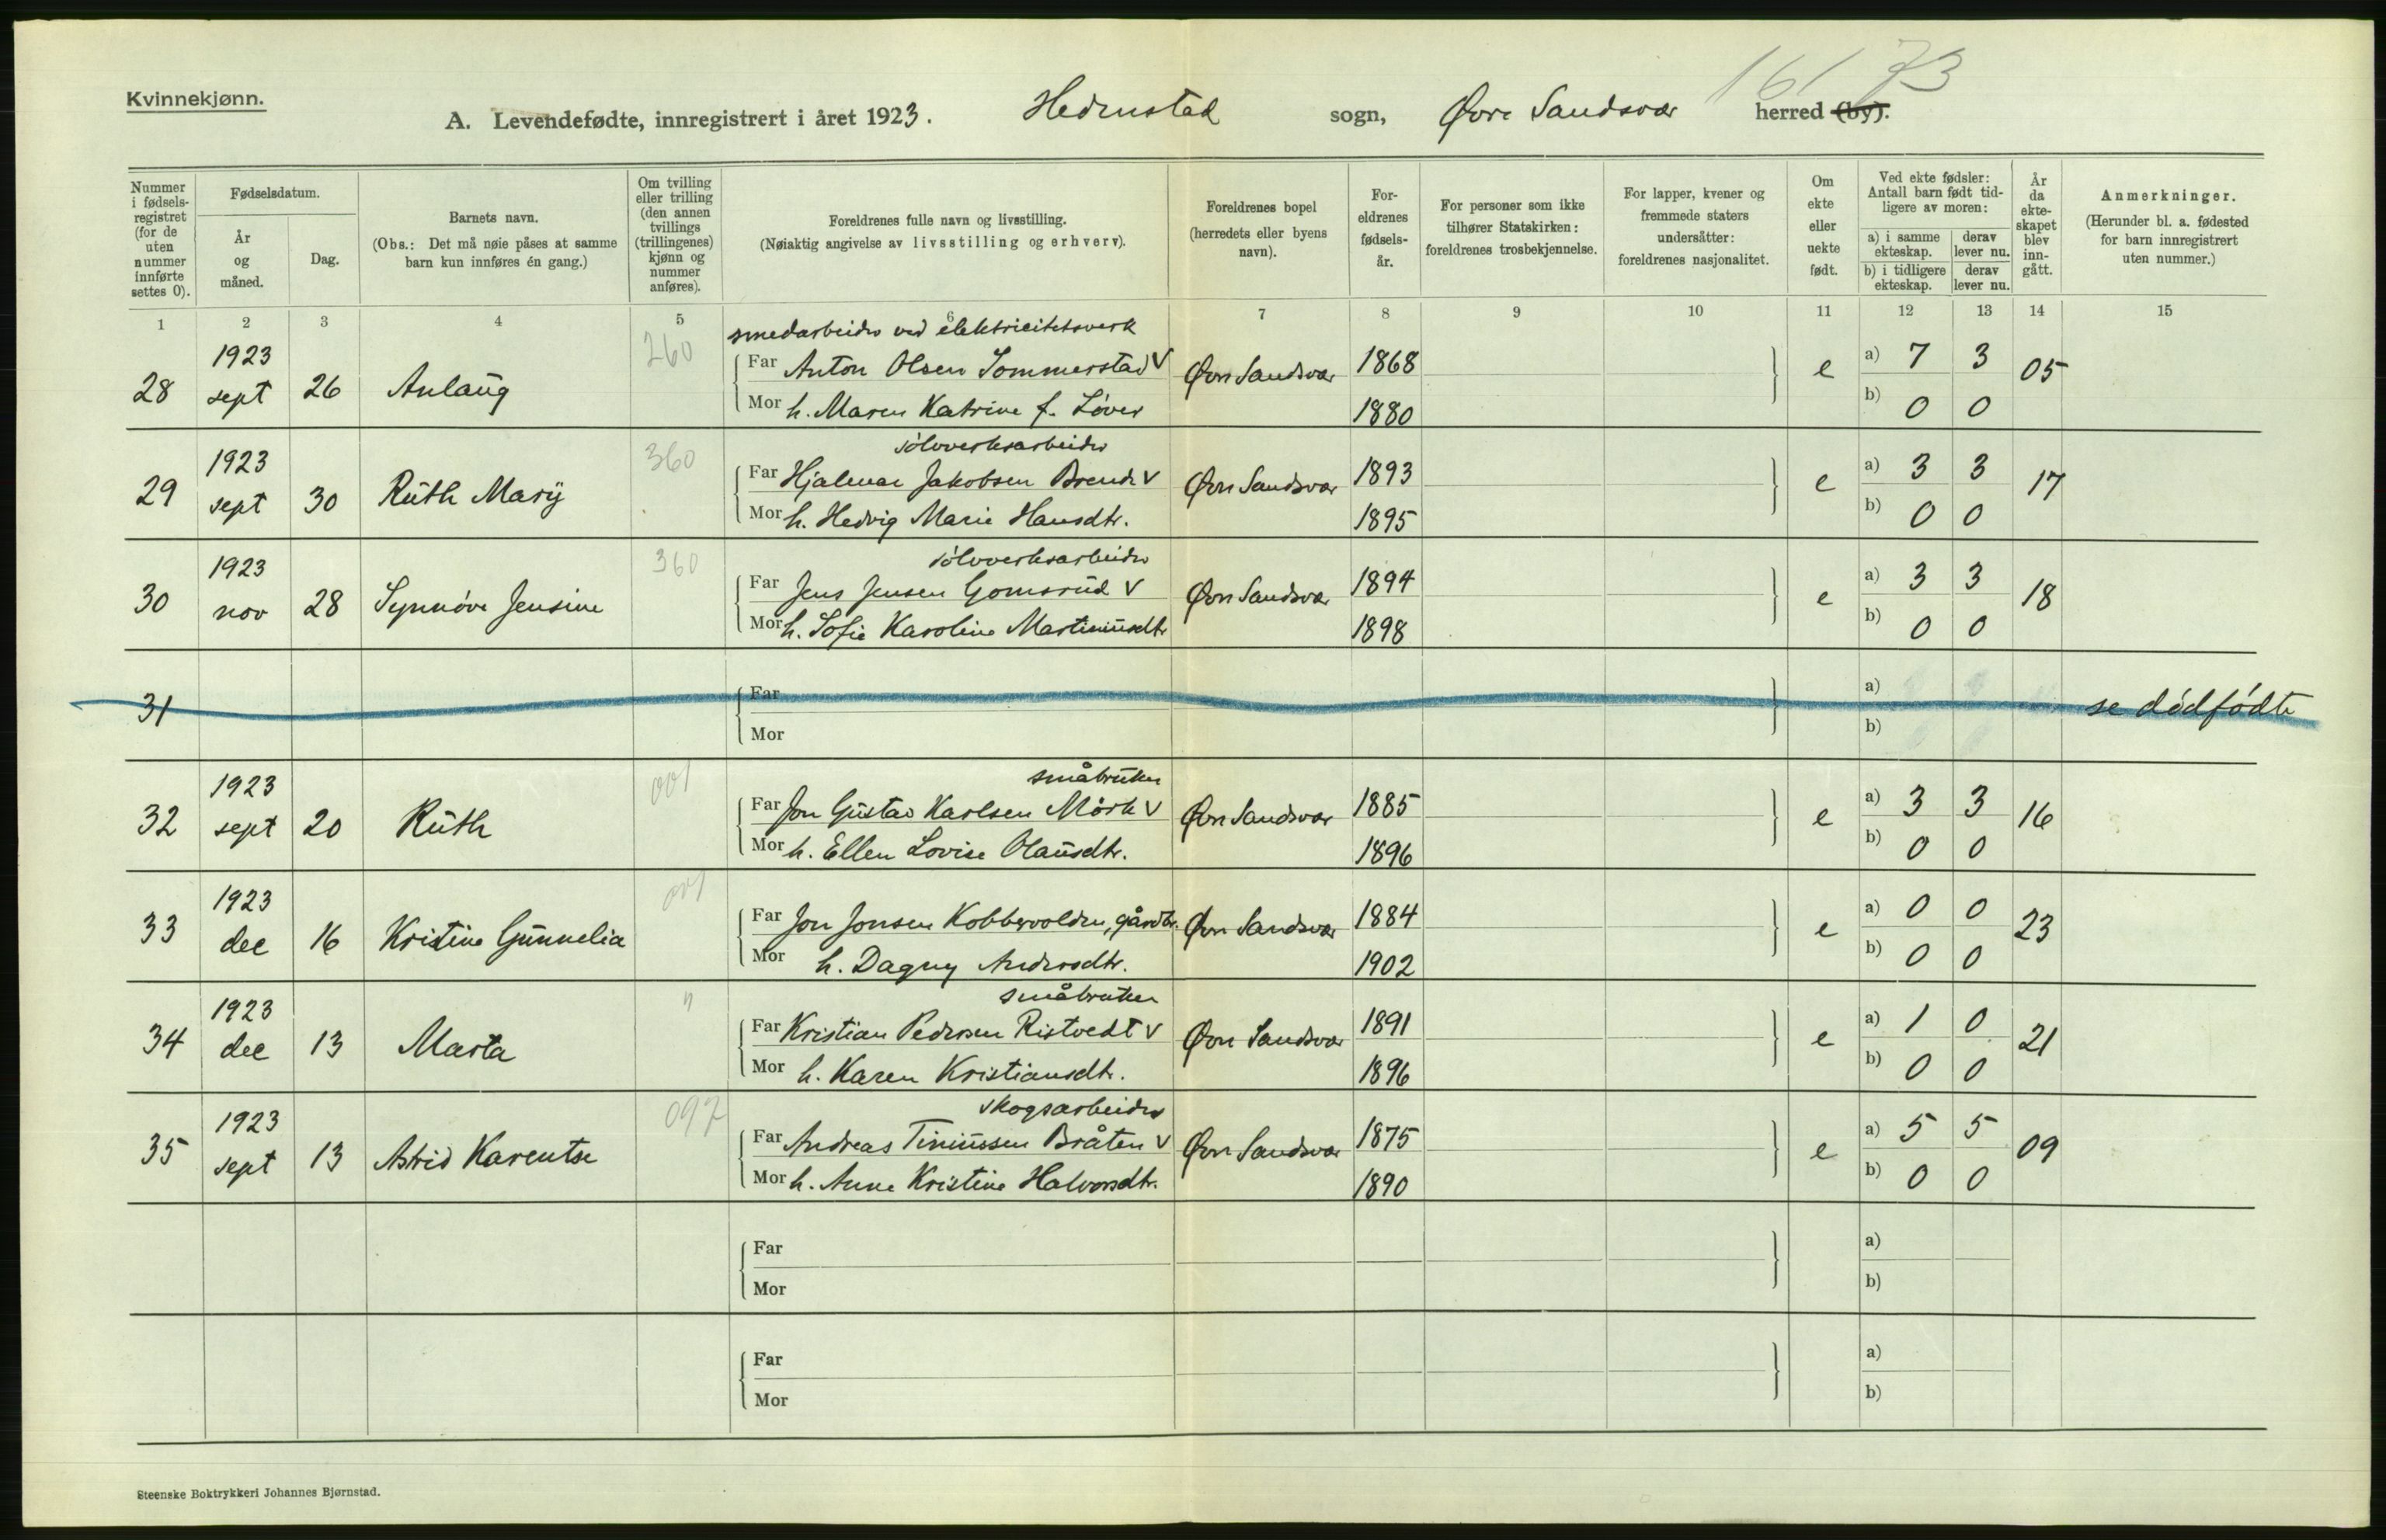 161 73
Kvinnekjønn.
A. Levendefødte, innregistrert i året 1923. Hedenstad sogn, Øvre Sandsvær herred (by).
Nummer i fødsels-registret (for de uten nummer innførte settes 0).
Fødselsdatum.
År og måned.
Dag.
Barnets navn.
(Obs.: Det må nøie påses at samme barn kun innføres én gang.)
Om tvilling eller trilling (den annen tvillings (trillingenes) kjønn og nummer anføres).
Foreldrenes fulle navn og livsstilling.
(Nøiaktig angivelse av livsstilling og erhverv).
Foreldrenes bopel (herredets eller byens navn).
For-eldrenes fødsels-år.
For personer som ikke tilhører Statskirken: foreldrenes trosbekjennelse.
For lapper, kvener og fremmede staters undersåtter: foreldrenes nasjonalitet.
Om ekte eller uekte født.
Ved ekte fødsler: Antall barn født tid-ligere av moren:
a) i samme ekteskap. derav lever nu.
b) i tidligere ekteskap. derav lever nu.
År da ekte-skapet blev inn-gått.
Anmerkninger.
(Herunder bl. a. fødested for barn innregistrert uten nummer.)
1 2 3 4 5 6 7 8 9 10 11 12 13 14 15
smedarbeider ved elektricitetsverk
1923 260 Far Anton Olsen Sommerstad V 1868 a) 7 3
28 sept 26 Anlaug Øvre Sandsvær e 05
Mor h. Maren Katrine f. Løver 1880 b) 0 0
sölvverksarbeider
1923 360 Far Hjalmar Jakobsen Brende V 1893 a) 3 3
29 sept 30 Ruth Mary Øvre Sandsvær e 17
Mor h. Hedvig Marie Hansdtr. 1895 b) 0 0
sölvverksarbeider
1923 360 Far Jens Jensen Gomsrud V 1894 a) 3 3
30 nov 28 Synnöve Jensine Øvre Sandsvær e 18
Mor h. Sofie Karoline Martiniusdtr 1898 b) 0 0
31 Far a) se dödfödte
Mor b)
småbruker
1923 001 Far Jon Gustav Karlsen Mörk V 1885 a) 3 3
32 sept 20 Ruth Øvre Sandsvær e 16
Mor h. Ellen Lovise Olausdtr. 1896 b) 0 0
1923 001 Far Jon Jonsen Kobbervolden, gårdbr. 1884 a) 0 0
33 dec 16 Kristine Gunnelia Øvre Sandsvær e 23
Mor h. Dagny Andersdtr. 1902 b) 0 0
småbruker
1923 " Far Kristian Pedersen Ristvedt V 1891 a) 1 0
34 dec 13 Marta Øvre Sandsvær e 21
Mor h. Karen Kristiansdtr. 1896 b) 0 0
skogsarbeider
1923 092 Far Andreas Tiniussen Bråten V 1875 a) 5 5
35 sept 13 Astrid Karentse Øvre Sandsvær e 09
Mor h. Anne Kristine Halvorsdtr. 1890 b) 0 0
Far a)
Mor b)
Far a)
Mor b)
Steenske Boktrykkeri Johannes Bjørnstad.